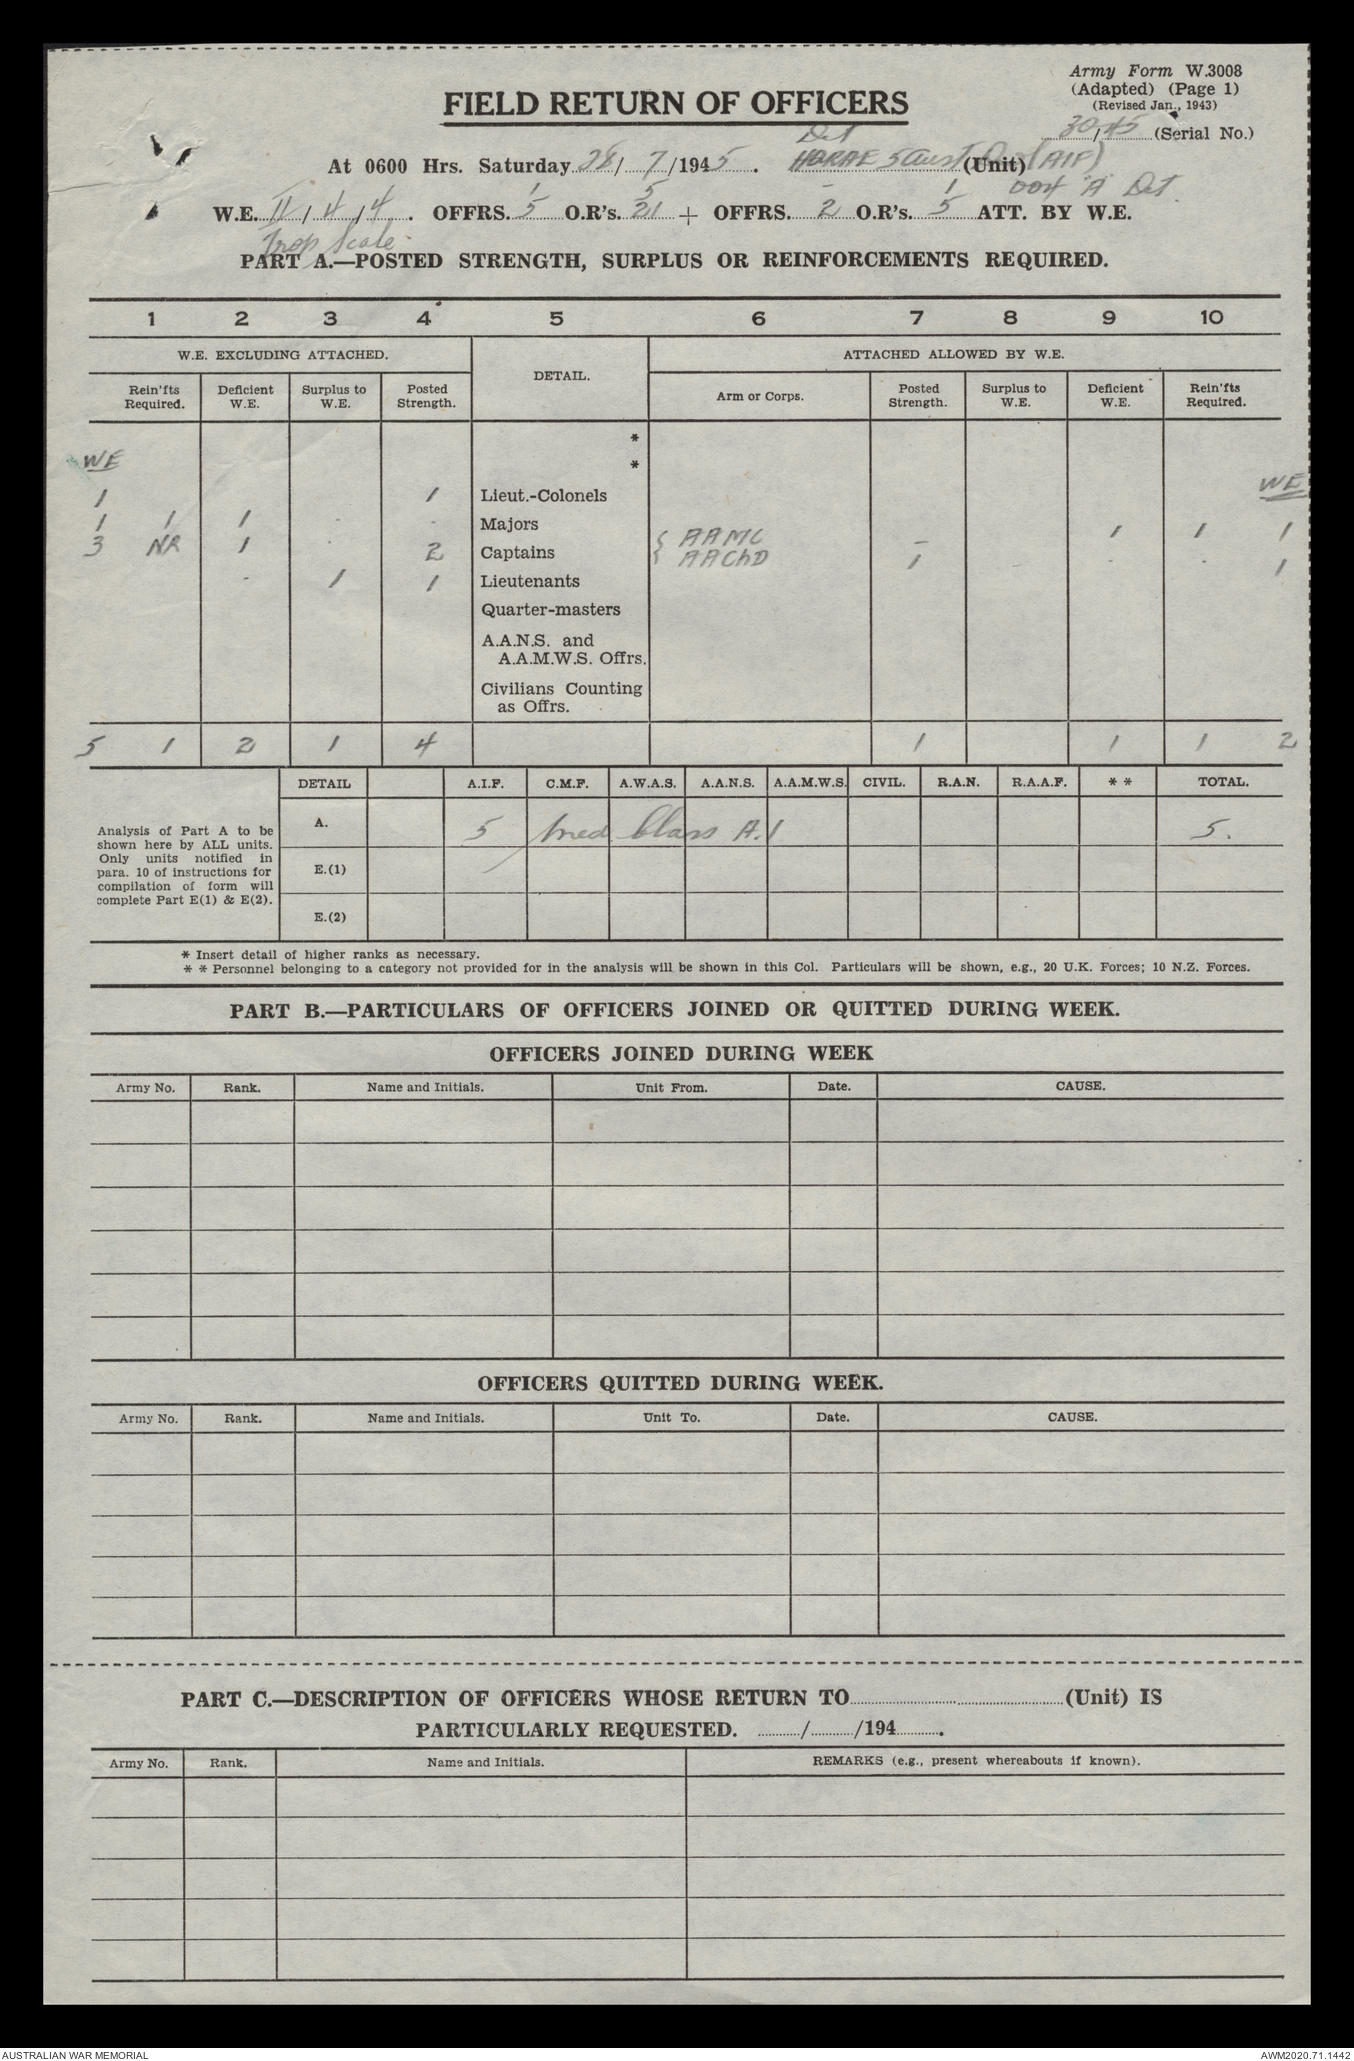 Army Form W.3008
(Adapted) (Page 1)
(Revised Jan., 1943)
FIELD RETURN OF OFFICERS
30/45 (Serial No.)
Det
At 0600 Hrs. Saturday 28/7/1945. HQRAE 5 Aust Div (AIF) (Unit)
1 5 - 1 004 "A" Det
W.E. II/4/4. OFFRS. 5 O.R's. 21 + OFFRS. 2 O.R's. 5 ATT. BY W.E.
Trop Scale
PART A.—POSTED STRENGTH, SURPLUS OR REINFORCEMENTS REQUIRED.
1 2 3 4 5 6 7 8 9 10
W.E. EXCLUDING ATTACHED. DETAIL. ATTACHED ALLOWED BY W.E.
Rein'fts Required. Deficient W.E. Surplus to W.E. Posted Strength. Arm or Corps. Posted Strength. Surplus to W.E. Deficient W.E. Rein'fts Required.
*
WE *
WE
1 1 Lieut.-Colonels
1 1 1 - - Majors { AAMC - 1 1 1
3 NR 1 2 Captains { AAChD 1 - - 1
- 1 1 Lieutenants
Quarter-masters
A.A.N.S. and
A.A.M.W.S. Offrs.
Civilians Counting
as Offrs.
5 1 2 1 4 1 1 1 2
DETAIL A.I.F. C.M.F. A.W.A.S. A.A.N.S. A.A.M.W.S. CIVIL. R.A.N. R.A.A.F. * * TOTAL.
Analysis of Part A to be
shown here by ALL units.
Only units notified in
para. 10 of instructions for
compilation of form will
complete Part E(1) & E(2).
A. 5 Med Class A.1 5.
E.(1)
E.(2)
* Insert detail of higher ranks as necessary.
* * Personnel belonging to a category not provided for in the analysis will be shown in this Col. Particulars will be shown, e.g., 20 U.K. Forces; 10 N.Z. Forces.
PART B.—PARTICULARS OF OFFICERS JOINED OR QUITTED DURING WEEK.
OFFICERS JOINED DURING WEEK
Army No. Rank. Name and Initials. Unit From. Date. CAUSE.
OFFICERS QUITTED DURING WEEK.
Army No. Rank. Name and Initials. Unit To. Date. CAUSE.
PART C.—DESCRIPTION OF OFFICERS WHOSE RETURN TO (Unit) IS
PARTICULARLY REQUESTED. / /194 .
Army No. Rank. Name and Initials. REMARKS (e.g., present whereabouts if known).
AUSTRALIAN WAR MEMORIAL AWM2020.71.1442